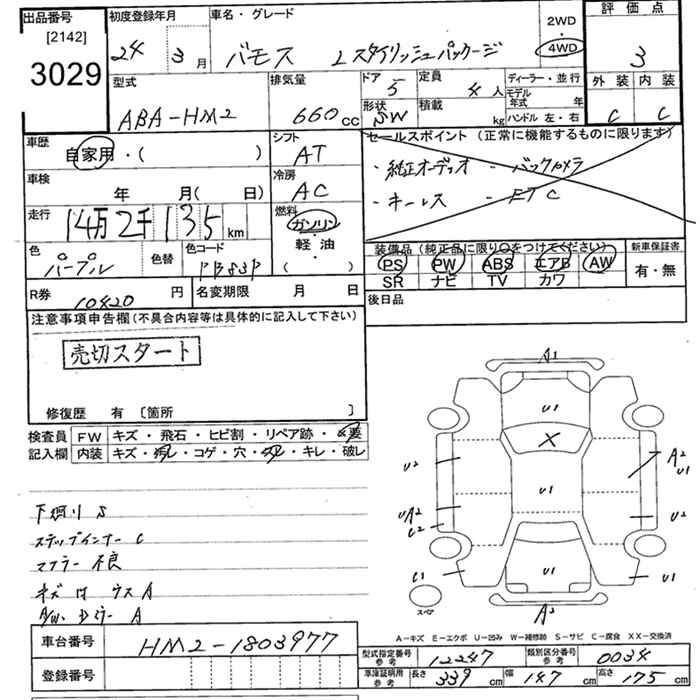 出品番号 初度登録年月 車名・グレード 2WD 評価点
[2142] 24 3月 バモス Lスタイリッシュパッケージ 4WD 3
3029
型式 排気量 ドア 5 定員 4人 ディーラー・並行 外装 内装
ABA-HM2 660cc 形状 SW 積載 kg モデル年式 年 C C
ハンドル 左・右
車歴 自家用・( ) シフト AT セールスポイント (正常に機能するものに限ります)
・純正オーディオ ・バックカメラ
車検 年 月( 日) 冷房 AC ・キーレス ・ETC
走行 14万2千135km 燃料 ガソリン 軽油 ( ・ )
色 パープル 色替 色コード PB83P
装備品 (純正品に限り○をつけてください) 新車保証書
PS PW ABS エアB AW 有・無
SR ナビ TV カワ
R券 10420円 名変期限 月 日 後日品
注意事項申告欄(不具合内容等は具体的に記入して下さい)
売切スタート
修復歴 有 〔箇所 〕
検査員 FW キズ・飛石・ヒビ割・リペア跡・×要
記入欄 内装 キズ・汚レ・コゲ・穴・欠レ・キレ・破レ
下廻り S
ステップインナー C
マフラー不良
キズ凹 ウス A
A/W、Dミラー A
A1
U1
×
U2 A2 U1
U1
UA2 U2
C2
C1 U1 U1
スペア A2
A-キズ E-エクボ U-凹み W-補修跡 S-サビ C-腐食 XX-交換済
車台番号 HM2-1803977
型式指定番号 参考 12247 類別区分番号 参考 0034
登録番号
車庫証明用 参考 長さ 339cm 幅 147cm 高さ 175cm